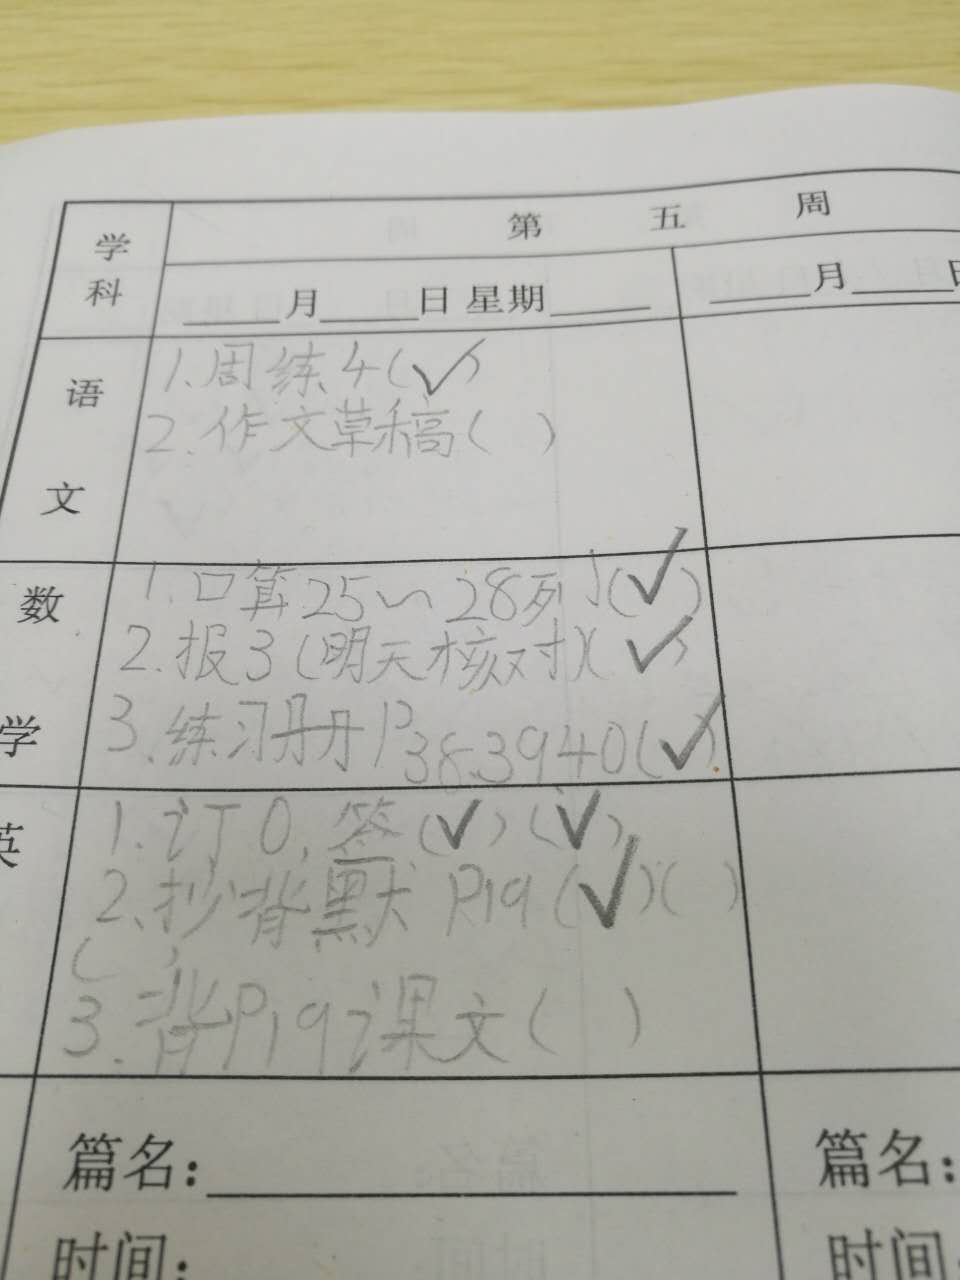 学科
第 五 周
____月____日 星期____
____月____日
语文
1.周练4(✓)
2.作文草稿( )
数学
1.口算25~28列(✓)
2.报3(明天核对)(✓)
3.练习册P38.39 40(✓)
英
1.订0.签(✓)(✓)
2.抄背默 P19(✓)( )
( )
3.背P19课文( )
篇名：
篇名：
时间：
时间